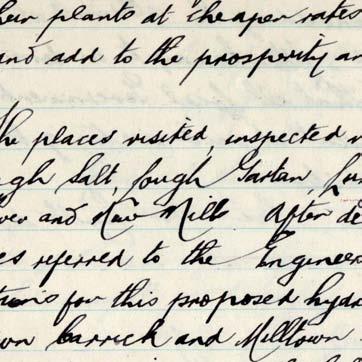 heir plants at cheaper rates
and add to the prosperity an
he places visited, inspected
ugh Salt, Lough Gartan, Lou
ver and New Mills After de
es referred to the Engineer
tions for this proposed hydr
own Carrick and Milltown